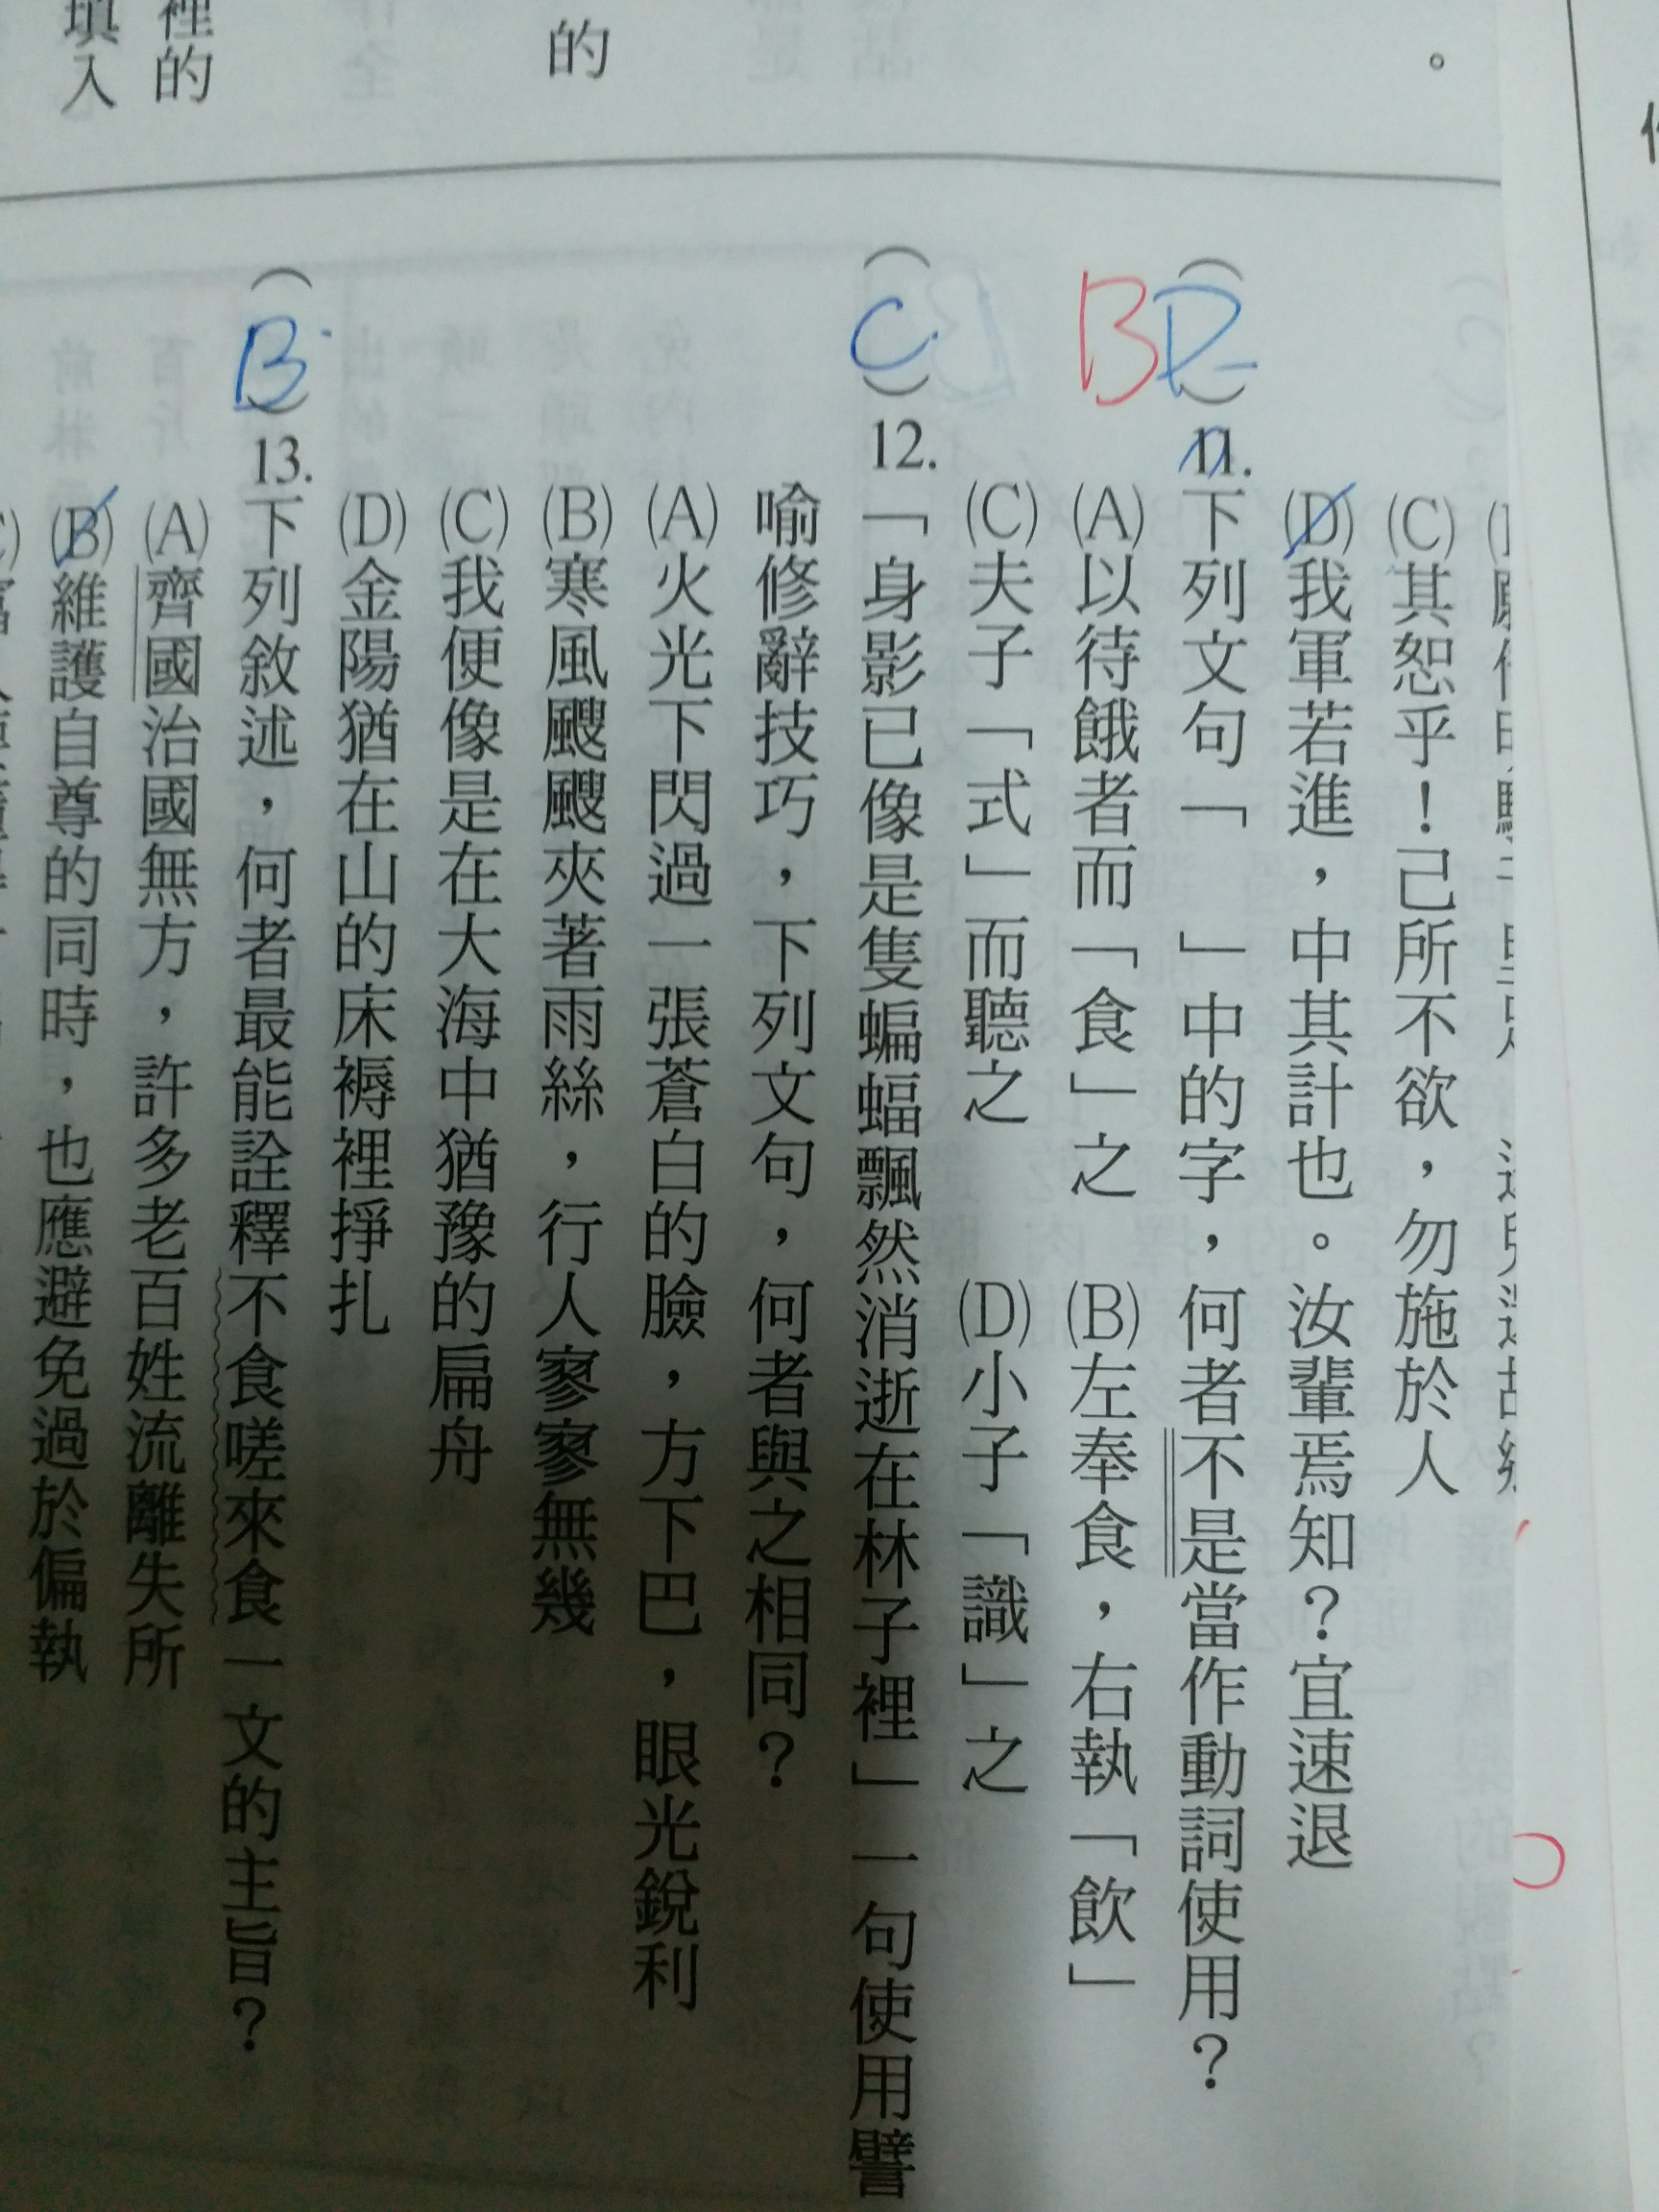 。
的
裡的
填入
(C)其恕乎！己所不欲，勿施於人
(D)我軍若進，中其計也。汝輩焉知？宜速退
BD
(　)11.下列文句「　」中的字，何者不是當作動詞使用？
(A)以待餓者而「食」之　(B)左奉食，右執「飲」
(C)夫子「式」而聽之　(D)小子「識」之
(C)12.「身影已像是隻蝙蝠飄然消逝在林子裡」一句使用譬
喻修辭技巧，下列文句，何者與之相同？
(A)火光下閃過一張蒼白的臉，方下巴，眼光銳利
(B)寒風颼颼夾著雨絲，行人寥寥無幾
(C)我便像是在大海中猶豫的扁舟
(D)金陽猶在山的床褥裡掙扎
(B)13.下列敘述，何者最能詮釋不食嗟來食一文的主旨？
(A)齊國治國無方，許多老百姓流離失所
(B)維護自尊的同時，也應避免過於偏執